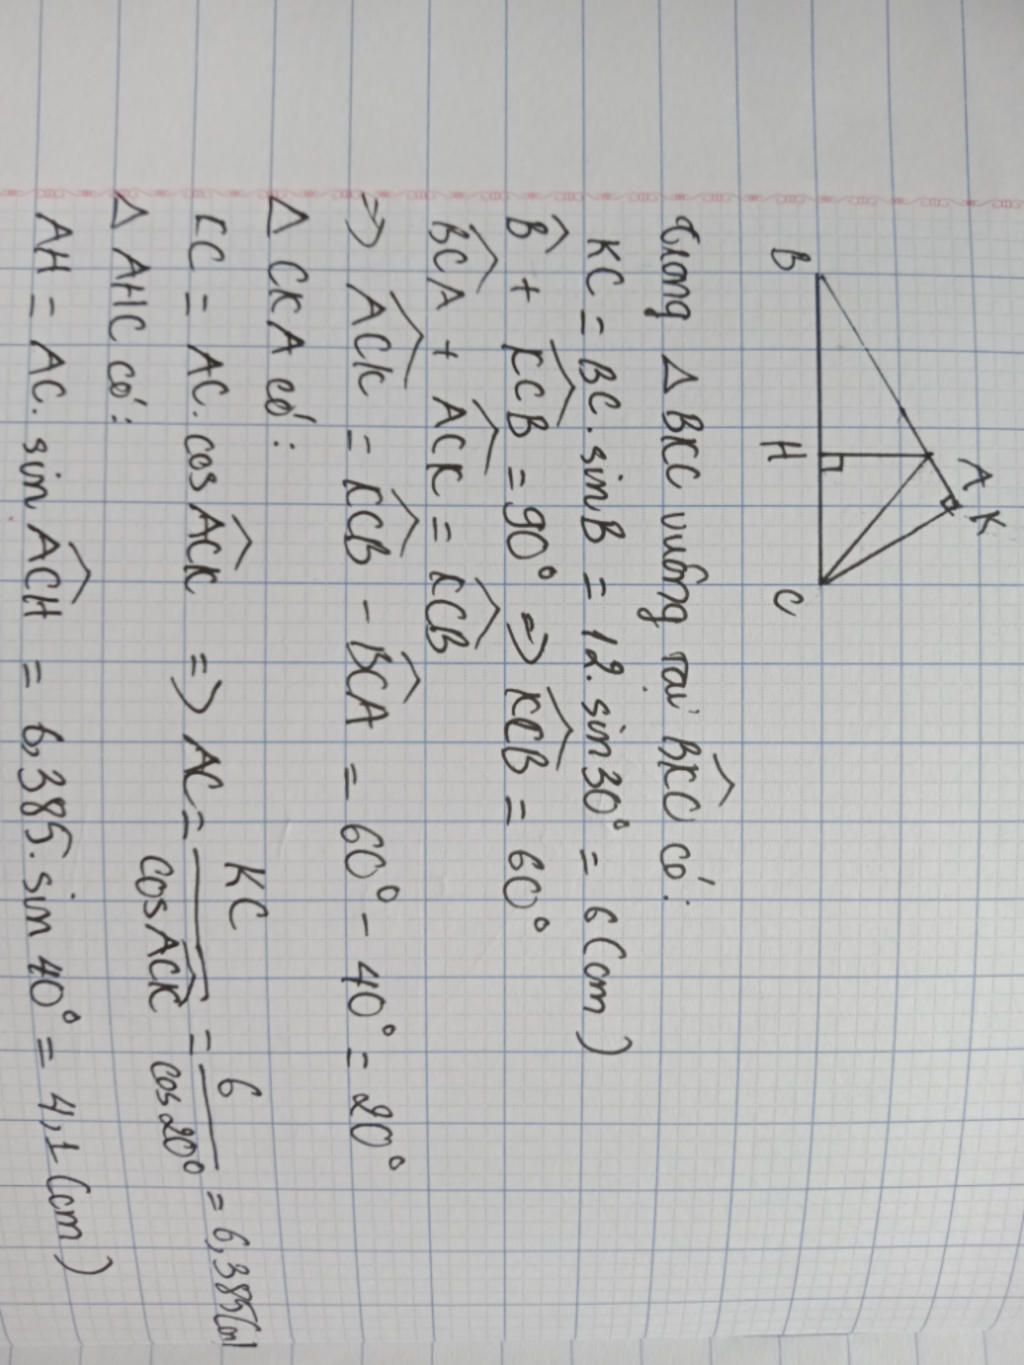 A K
B H C
Trong Δ BKC vuông tại B̂KC có:
KC = BC. sinB = 12. sin30° = 6 (cm)
B̂ + K̂CB = 90° => K̂CB = 60°
B̂CA + ÂCK = K̂CB
=> ÂCK = K̂CB - B̂CA = 60° - 40° = 20°
Δ CKA có:
KC = AC. cos ÂCK => AC = KC / cos ÂCK = 6 / cos20° = 6,385 (cm)
Δ AHC có:
AH = AC. sin ÂCH = 6,385. sin 40° = 4,1 (cm)